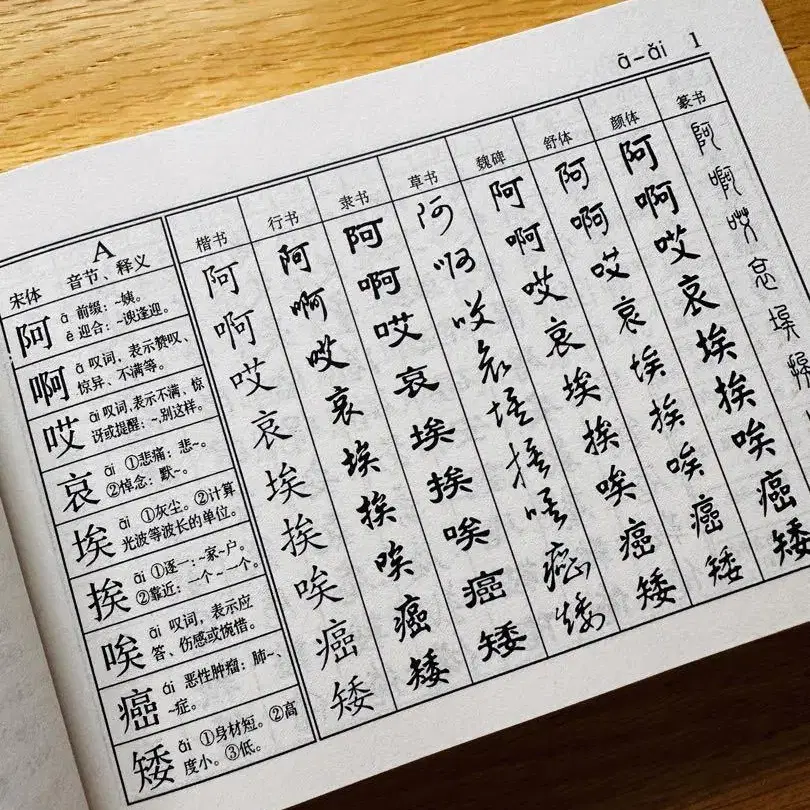 ā–ǎi 1
A
宋体 音节、释义 楷书 行书 隶书 草书 魏碑 舒体 颜体 篆书
阿 ā 前缀：~姨。
ē 迎合：~谀逢迎。
阿 阿 阿 阿 阿 阿 阿 阿
啊 ā 叹词，表示赞叹、
惊异、不满等。
啊 啊 啊 啊 啊 啊 啊 啊
哎 āi 叹词，表示不满，惊
讶或提醒：~，别这样。
哎 哎 哎 哎 哎 哎 哎 哎
哀 āi ①悲痛：悲~。
②悼念：默~。
哀 哀 哀 哀 哀 哀 哀 哀
埃 āi ①灰尘。②计算
光波等波长的单位。
埃 埃 埃 埃 埃 埃 埃 埃
挨 āi ①逐一：~家~户。
②靠近：一个~一个。
挨 挨 挨 挨 挨 挨 挨 挨
唉 āi 叹词，表示应
答、伤感或惋惜。
唉 唉 唉 唉 唉 唉 唉
癌 ái 恶性肿瘤：肺~、
~症。
癌 癌 癌 癌 癌 癌 癌
矮 ǎi ①身材短。②高
度小。③低。
矮 矮 矮 矮 矮 矮 矮